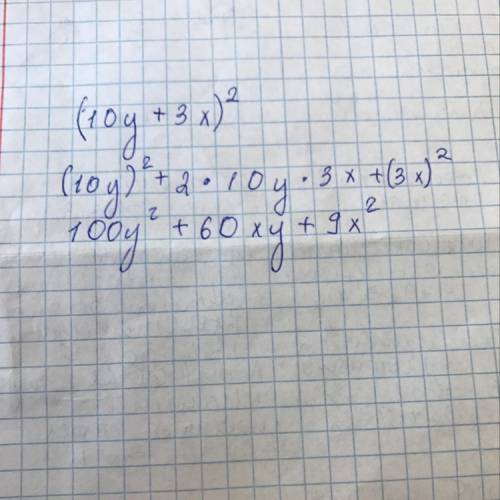 (10y + 3x)²
(10y)² + 2 · 10y · 3x + (3x)²
100y² + 60xy + 9x²